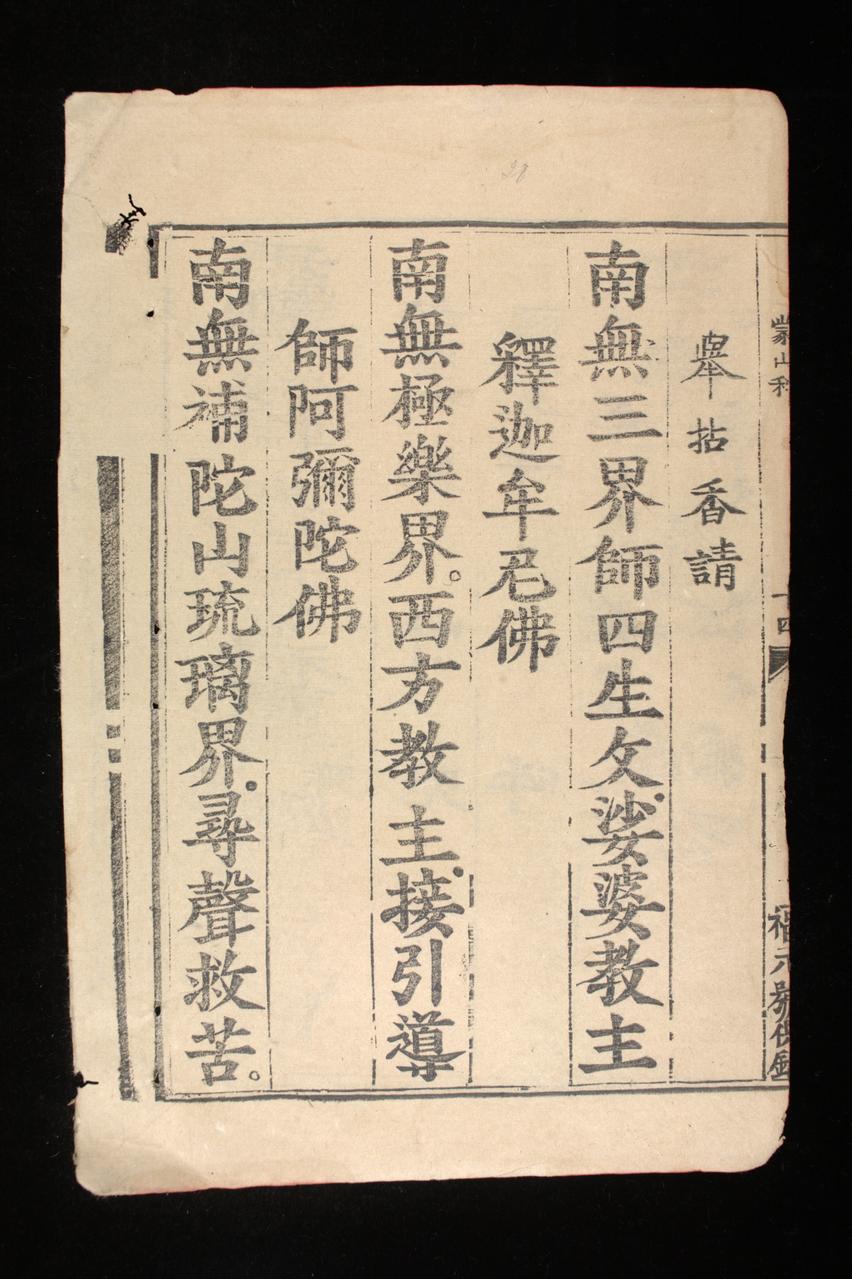 蒙山科
十四
福元号供
舉拈香請
南無三界師四生父娑婆教主
釋迦牟尼佛
南無極樂界。西方教主接引導
師阿彌陀佛
南無補陀山琉璃界。尋聲救苦。
28